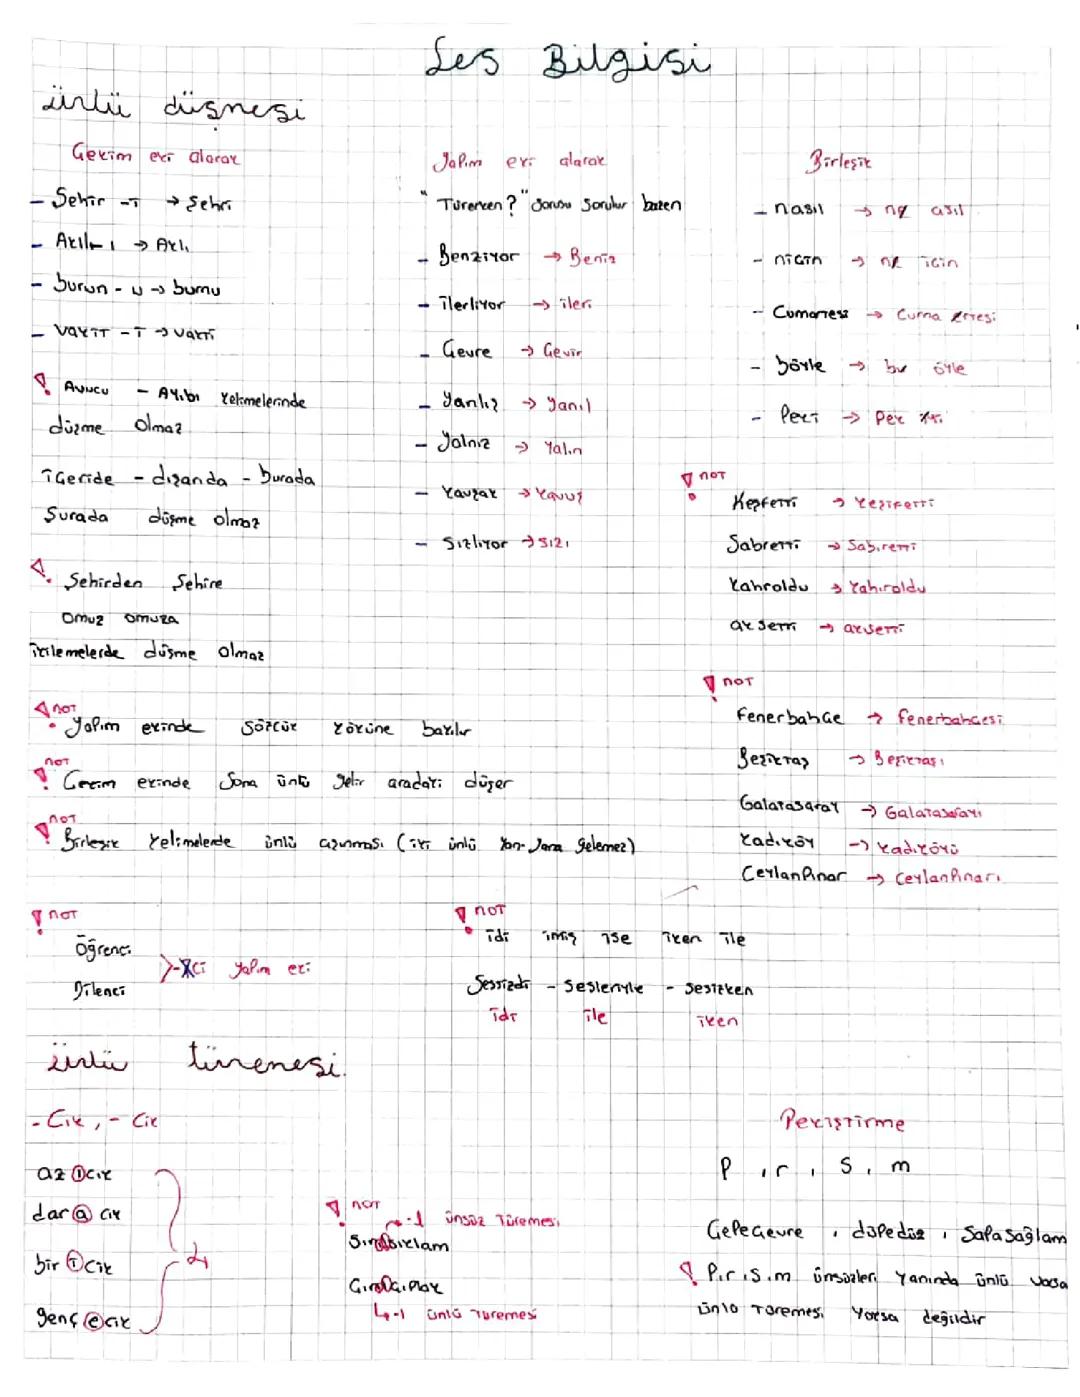 Ses Bilgisi
ünlü düşmesi
Çekim eki alarak
- Şehir -i → şehri
- Akıl - ı → Aklı
- burun - u → burnu
- vakit - i → vakti
! Avucu - Ayıbı kelimelerinde
düşme olmaz
içeride - dışarıda - burada
Şurada düşme olmaz
! Şehirden Şehire
omuz omuza
ikilemelerde düşme olmaz
Yapım eki alarak
"Türerken?" sorusu sorulur bazen
- Benziyor → Beniz
- ilerliyor → ileri
- Çevre → Çevir
- Yanlız → yanıl
- Yalnız → Yalın
- Yavşak → Yavuş
- Sızlıyor → sızı
Birleşik
- nasıl → ne asıl
- niçin → ne için
- Cumartesi → Cuma ertesi
- böyle → bu öyle
- Peki → Pek iyi
! not
Keşfetti → keşifetti
Sabretti → Sabıretti
Kahroldu → kahıroldu
aksetti → akisetti
! not
Fenerbahçe → fenerbahçesi
Beşiktaş → Beşiktaşı
Galatasaray → Galatasarayı
Kadıköy → kadıköyü
CeylanPınar → CeylanPınarı
! not
Yapım ekinde sözcük köküne bakılır
not
! Çekim ekinde Sona ünlü gelir aradaki düşer
not
! Birleşik kelimelerde ünlü aşınması (iki ünlü Yan-Yana gelemez)
! not
Öğrenci
>-ci yapım eki
Dilenci
! not
idi imiş ise iken ile
Sessizdi - Sesleriyle - sesizken
idi ile iken
ünlü türemesi.
- Cık, - Cik
azıcık
daracık
biricik
gencecik
! not
→ -ı ünsüz Türemesi
Sırılsıklam
Çırılçıplak
↳ -ı ünlü Türemesi
Pekiştirme
P , r , S , m
ÇepeÇevre , düpedüz , SapaSağlam
! P,r,S,m ünsüzleri yanında ünlü varsa
ünlü Türemesi Yoksa değildir